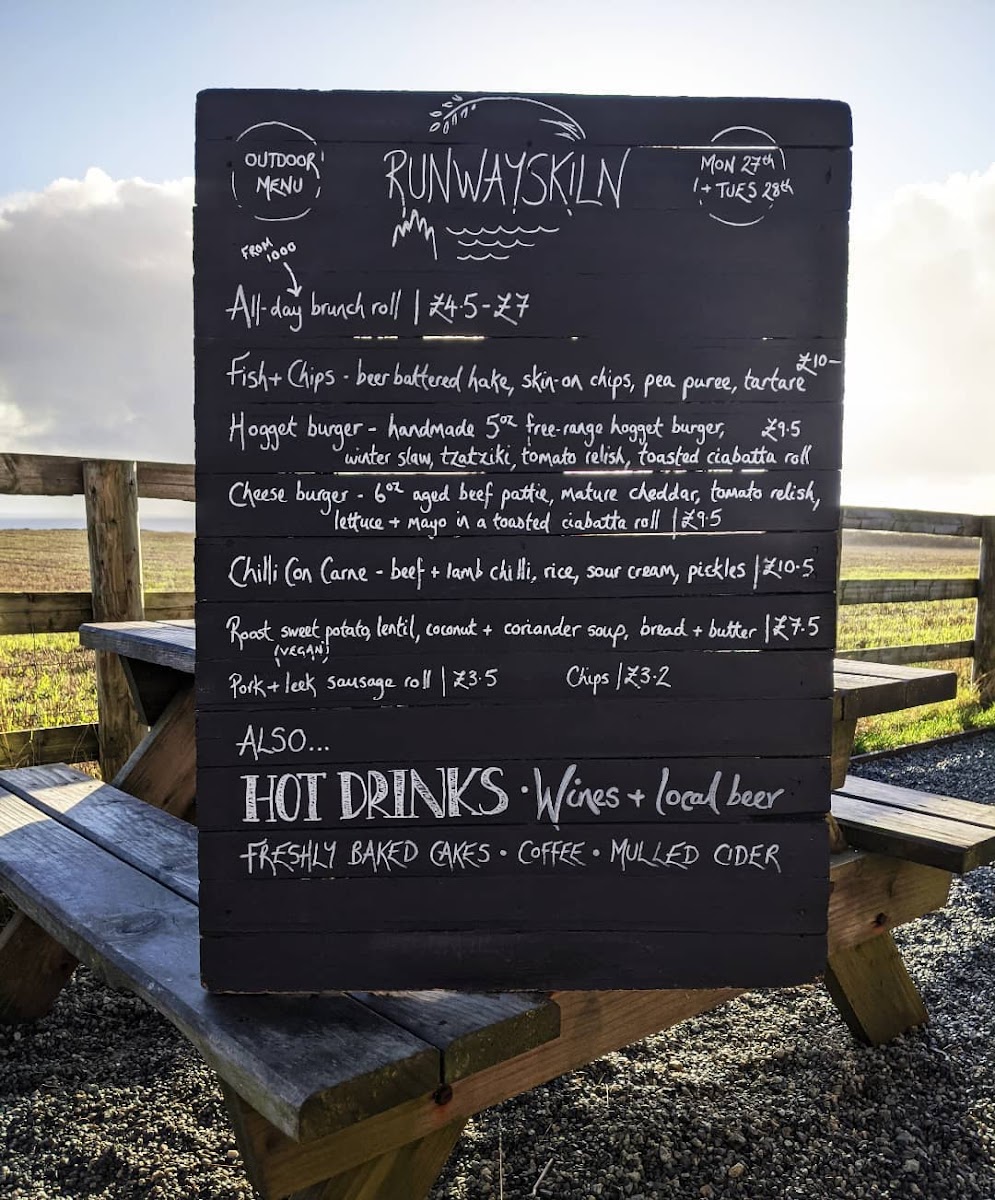 OUTDOOR MENU
RUNWAYSKILN
MON 27th
+ TUES 28th
FROM 1000
All-day brunch roll | £4.5-£7
Fish + Chips - beer battered hake, skin-on chips, pea puree, tartare £10-
Hogget burger - handmade 5oz free-range hogget burger, £9.5
winter slaw, tzatziki, tomato relish, toasted ciabatta roll
Cheese burger - 6oz aged beef pattie, mature cheddar, tomato relish,
lettuce + mayo in a toasted ciabatta roll | £9.5
Chilli Con Carne - beef + lamb chilli, rice, sour cream, pickles | £10.5
Roast sweet potato, lentil, coconut + coriander soup, bread + butter | £7.5
(VEGAN)
Pork + leek sausage roll | £3.5 Chips | £3.2
ALSO...
HOT DRINKS · Wines + local beer
FRESHLY BAKED CAKES · COFFEE · MULLED CIDER